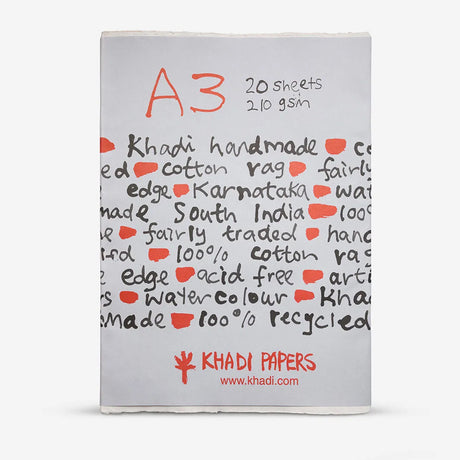 A3 20 sheets
210 gsm
Khadi handmade co
ed cotton rag fairly
edge Karnataka wat
made South India 100
e fairly traded hand
ird 100% cotton rag
e edge acid free arti
rs watercolour Kha
made 100% recycled
KHADI PAPERS
www.khadi.com